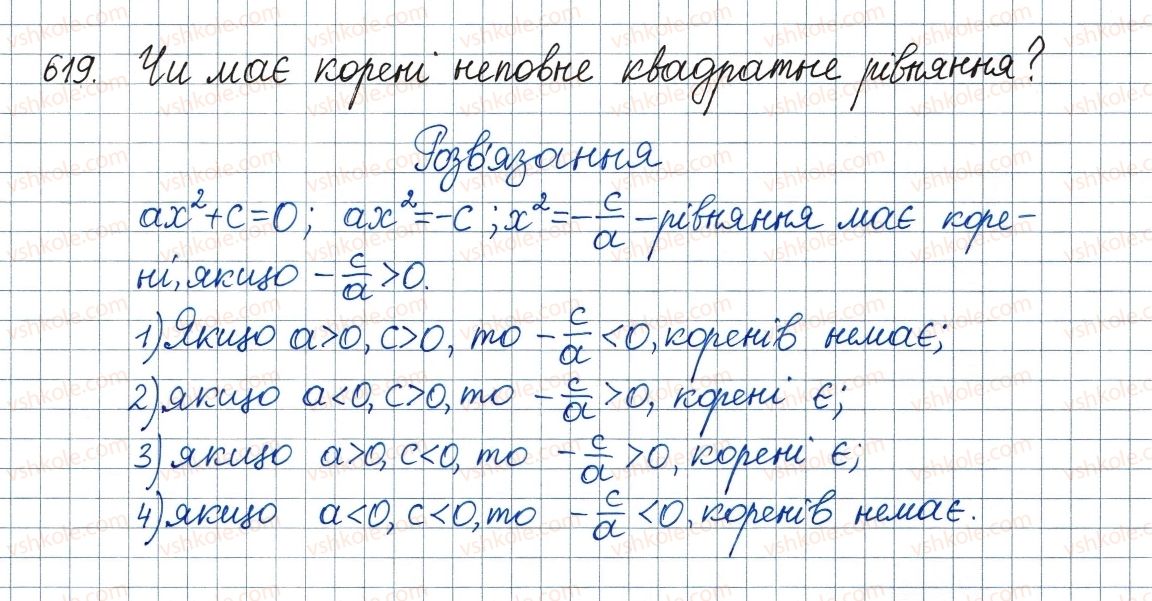 619. Чи має корені неповне квадратне рівняння?
Розв'язання
ax²+c=0; ax²=-c; x²=-c/a - рівняння має коре-
ні, якщо -c/a>0.
1) Якщо a>0, c>0, то -c/a<0, коренів немає;
2) якщо a<0, c>0, то -c/a>0, корені є;
3) якщо a>0, c<0, то -c/a>0, корені є;
4) якщо a<0, c<0, то -c/a<0, коренів немає.